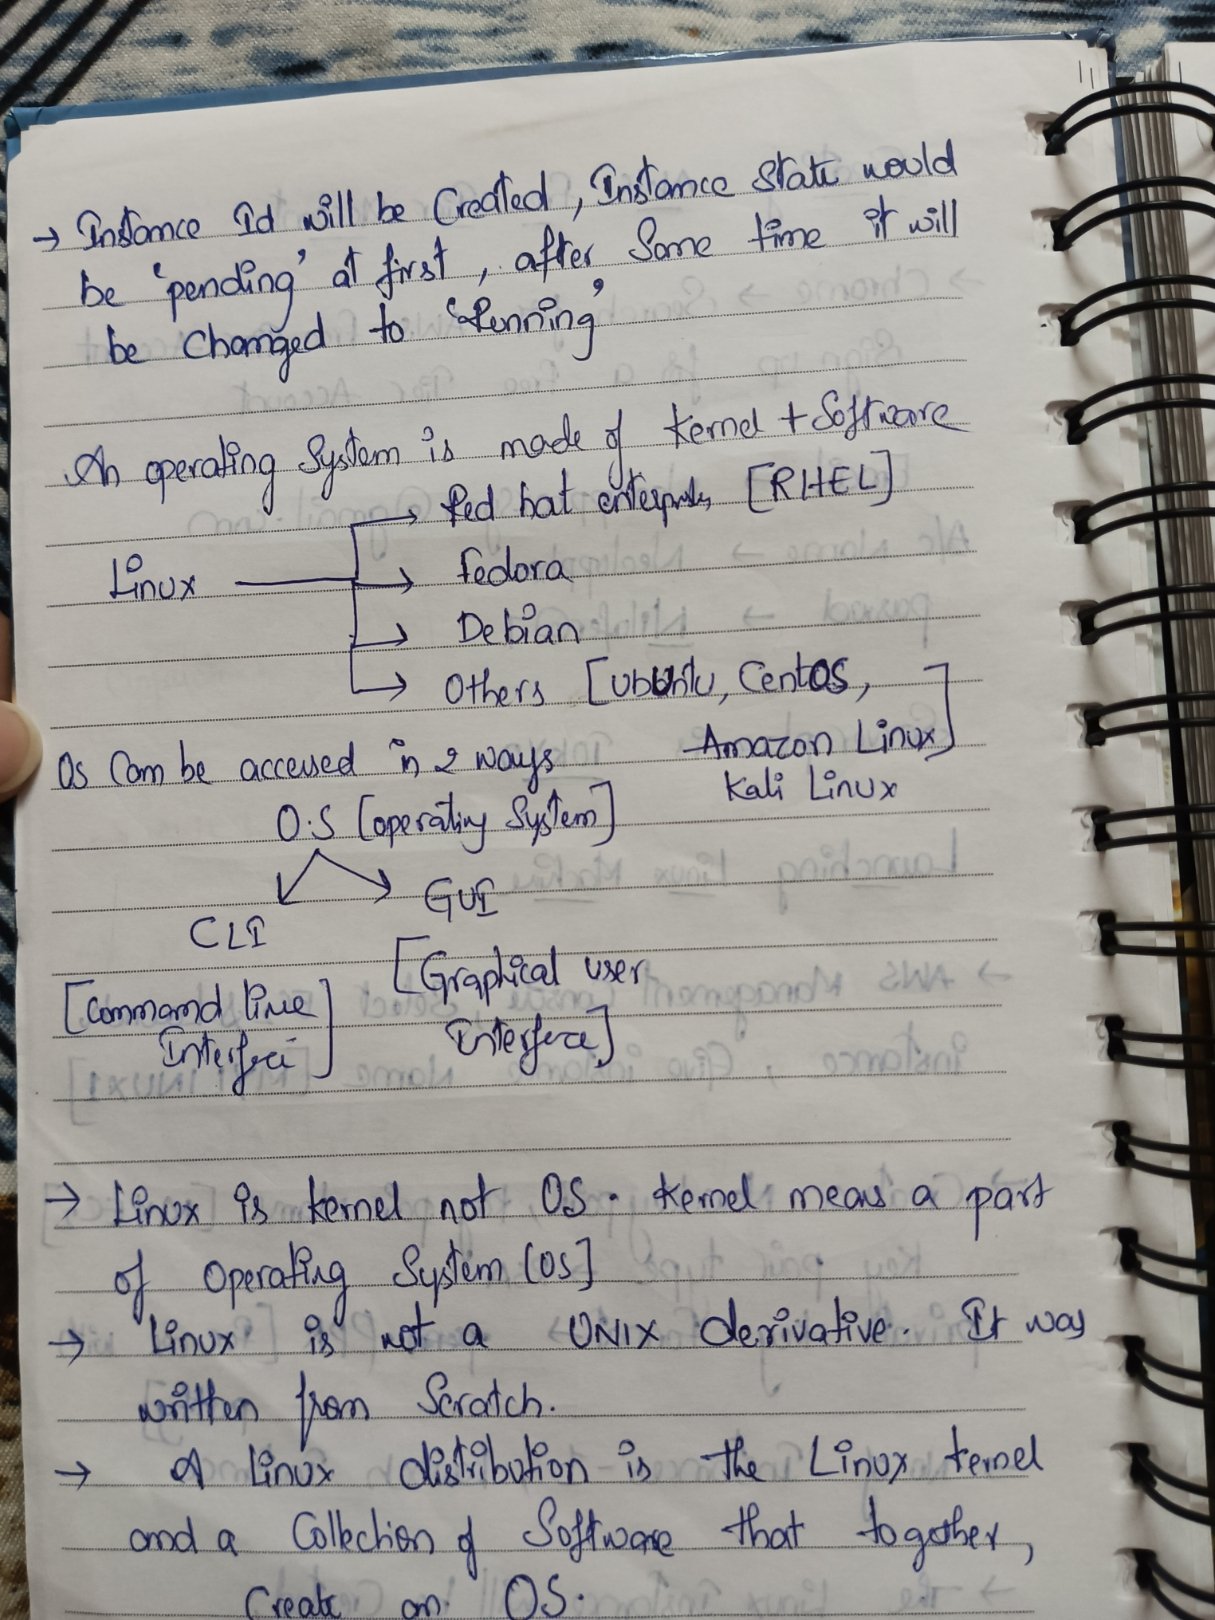 → Instance Id will be Created, Instance State would
be 'pending' at first, after Some time it will
be Changed to 'Running'
An operating System is made of Kernel + Software
Linux
→ Red hat enterprise [RHEL]
→ Fedora
→ Debian
→ Others [Ubuntu, CentOS,
Amazon Linux]
Kali Linux
Os Can be accessed in 2 ways
O.S [operating System]
CLI
GUI
[Command line
Interface]
[Graphical user
Interface]
→ Linux is kernel not OS. Kernel means a part
of Operating System [OS]
→ Linux is not a UNIX derivative. It was
written from Scratch.
→ A Linux distribution is the Linux kernel
and a Collection of Software that together,
Create an OS.